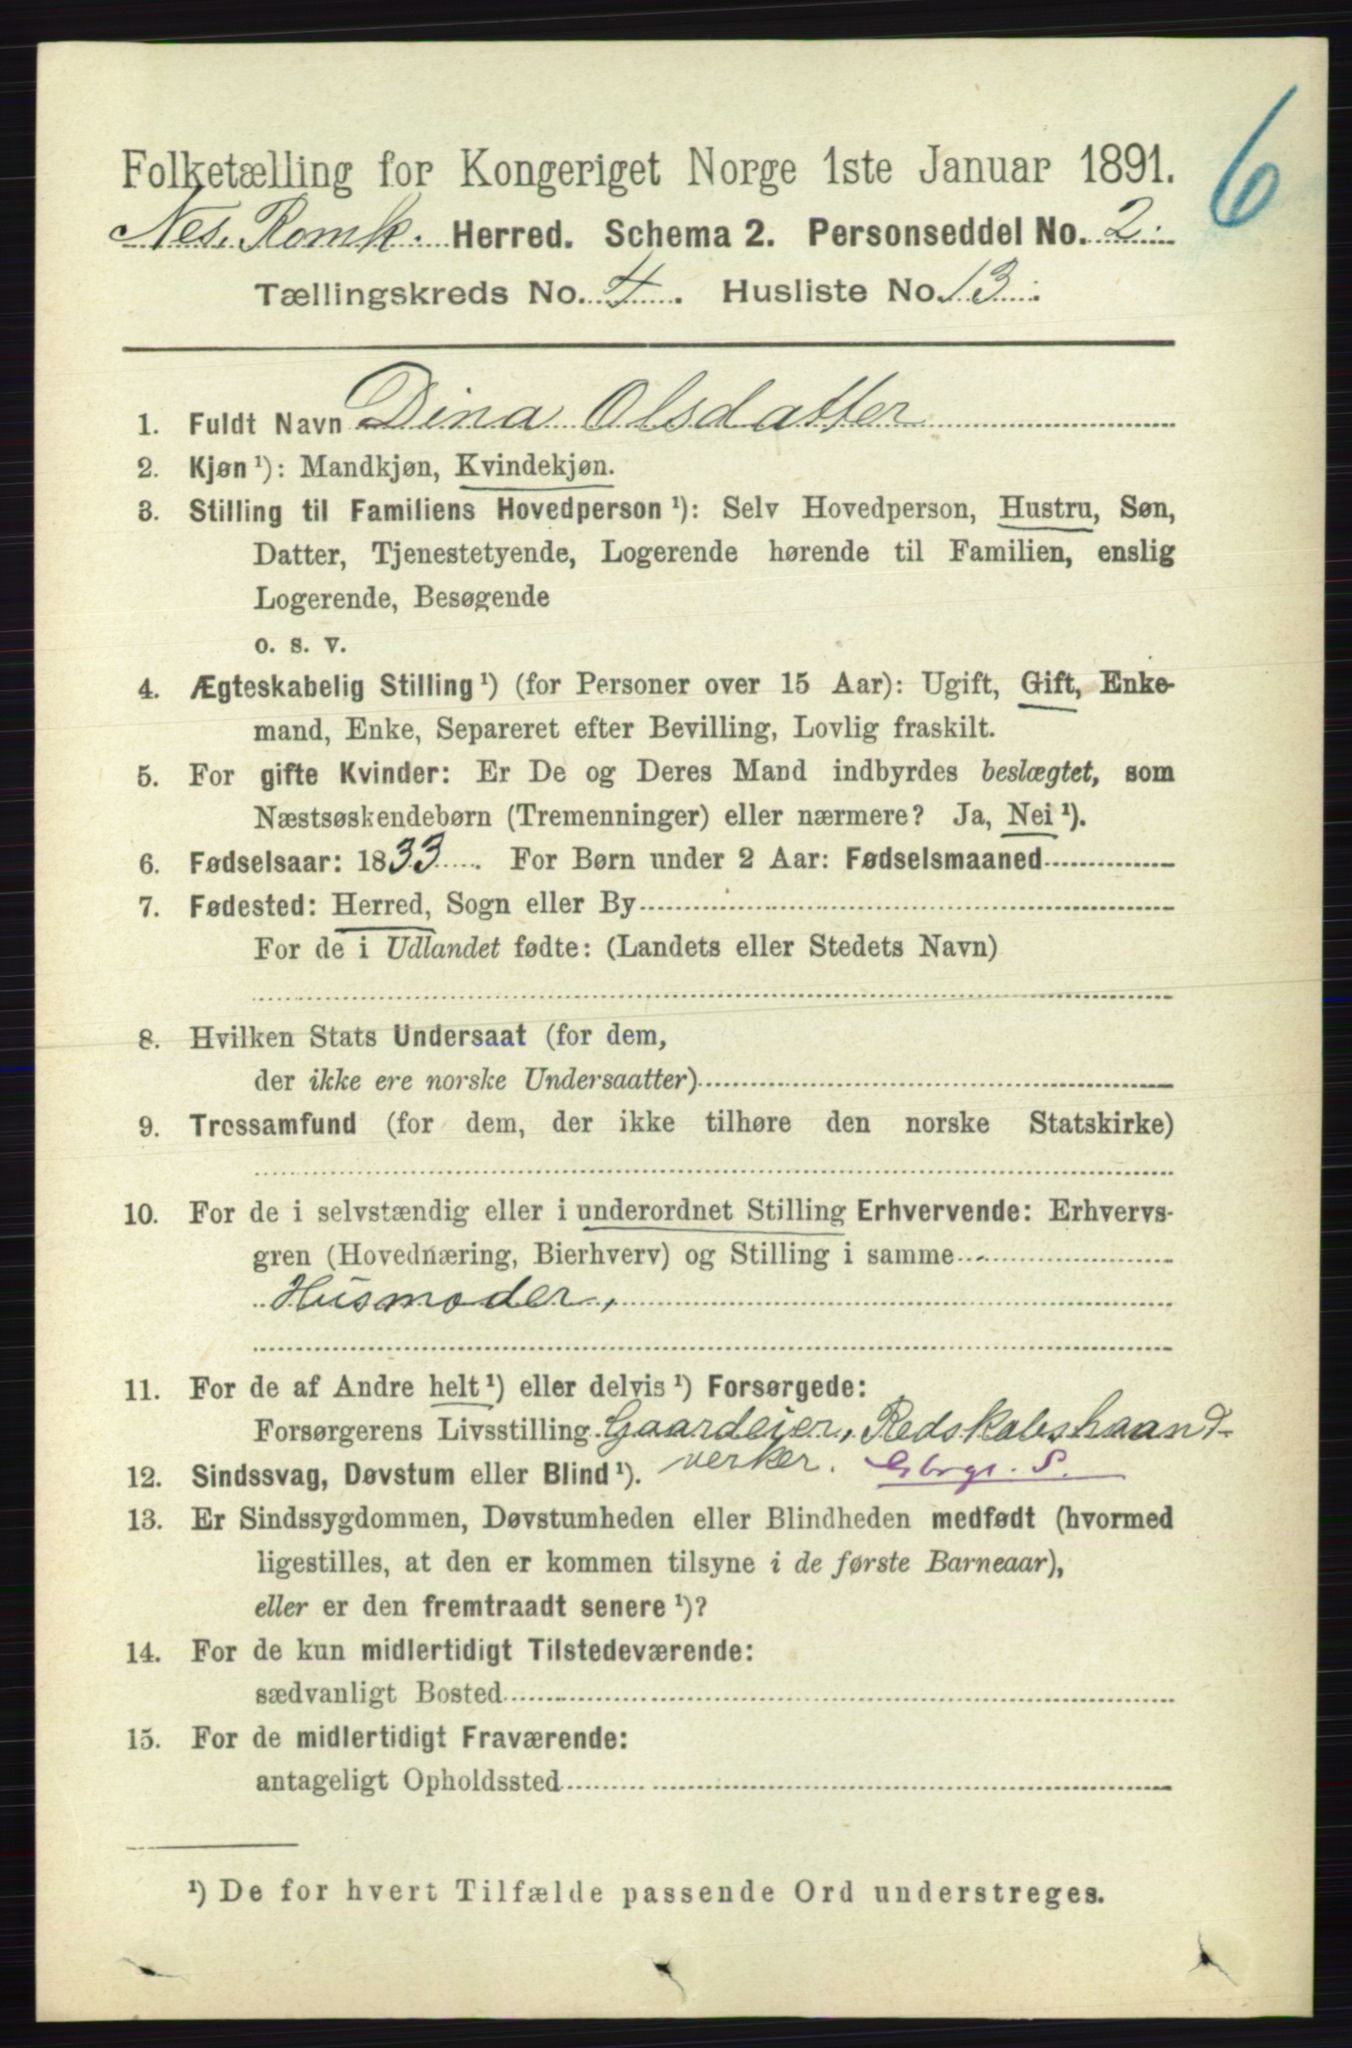 6
Folketælling for Kongeriget Norge 1ste Januar 1891.
Nes, Romk. Herred. Schema 2. Personseddel No. 2
Tællingskreds No. 4. Husliste No. 13.
1. Fuldt Navn Dina Olsdatter
2. Kjøn ¹): Mandkjøn, Kvindekjøn.
3. Stilling til Familiens Hovedperson ¹): Selv Hovedperson, Hustru, Søn,
Datter, Tjenestetyende, Logerende hørende til Familien, enslig
Logerende, Besøgende
o. s. v.
4. Ægteskabelig Stilling ¹) (for Personer over 15 Aar): Ugift, Gift, Enke-
mand, Enke, Separeret efter Bevilling, Lovlig fraskilt.
5. For gifte Kvinder: Er De og Deres Mand indbyrdes beslægtet, som
Næstsøskendebørn (Tremenninger) eller nærmere? Ja, Nei ¹).
6. Fødselsaar: 1833. For Børn under 2 Aar: Fødselsmaaned
7. Fødested: Herred, Sogn eller By
For de i Udlandet fødte: (Landets eller Stedets Navn)
8. Hvilken Stats Undersaat (for dem,
der ikke ere norske Undersaatter)
9. Trossamfund (for dem, der ikke tilhøre den norske Statskirke)
10. For de i selvstændig eller i underordnet Stilling Erhvervende: Erhvervs-
gren (Hovednæring, Bierhverv) og Stilling i samme
Husmoder,
11. For de af Andre helt ¹) eller delvis ¹) Forsørgede:
Forsørgerens Livsstilling Gaardeier, Redskabshaand-
verker. Gbrgr. S.
12. Sindssvag, Døvstum eller Blind ¹).
13. Er Sindssygdommen, Døvstumheden eller Blindheden medfødt (hvormed
ligestilles, at den er kommen tilsyne i de første Barneaar),
eller er den fremtraadt senere ¹)?
14. For de kun midlertidigt Tilstedeværende:
sædvanligt Bosted
15. For de midlertidigt Fraværende:
antageligt Opholdssted
¹) De for hvert Tilfælde passende Ord understreges.